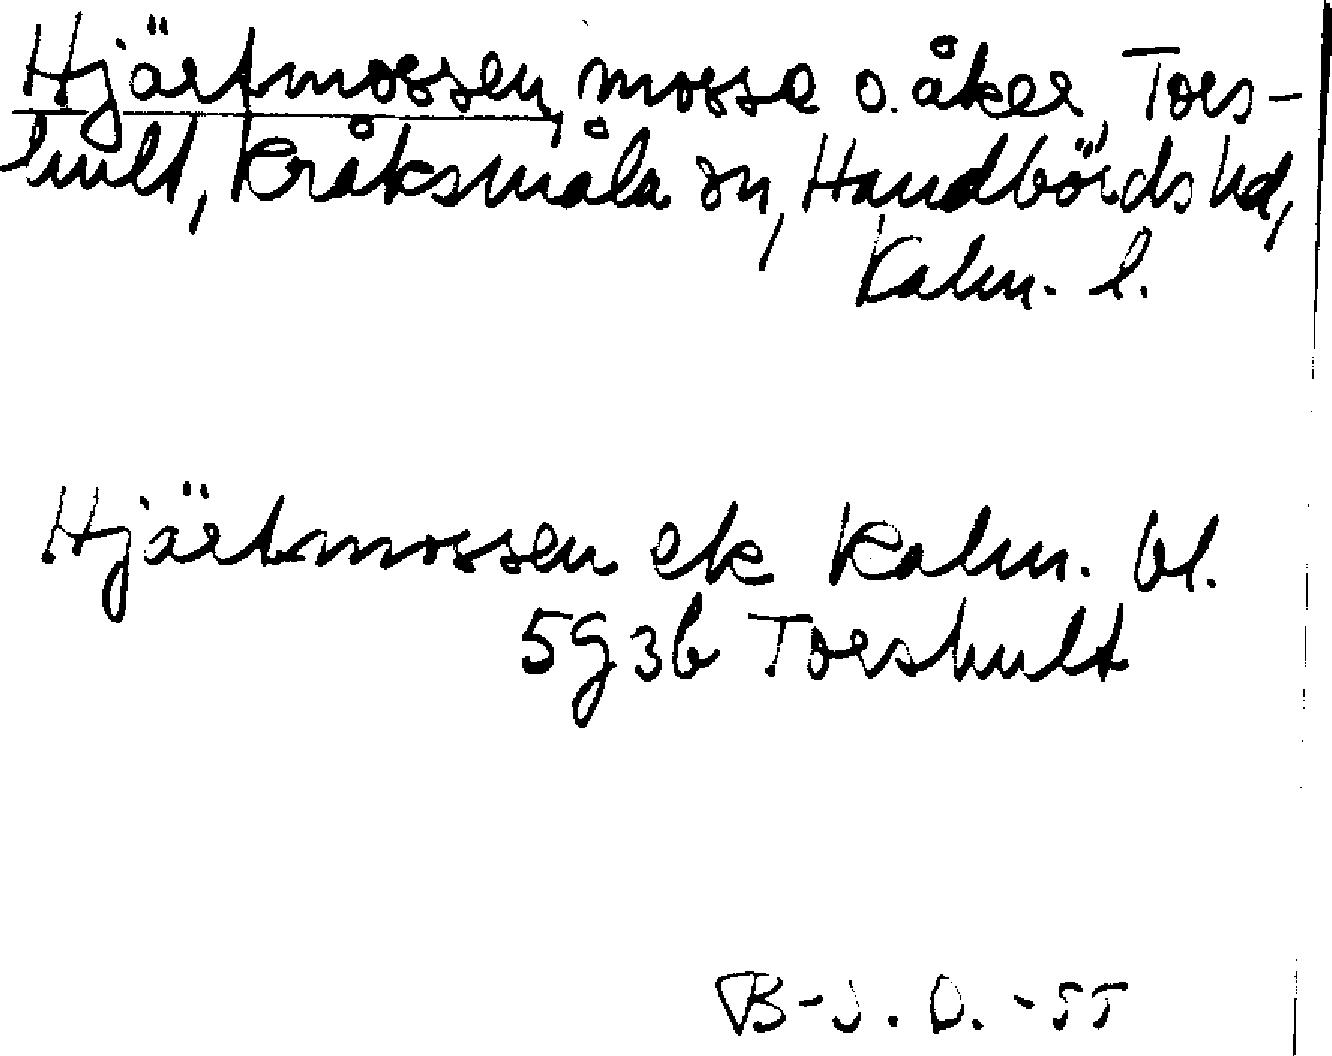 Hjärtmossen, mosse o. åker, Tors-
hult, Kråksmåla sn, Handbörds hd,
Kalm. l.
Hjärtmossen ek Kalm. bl.
5g3b Torshult
B-J. O. -55